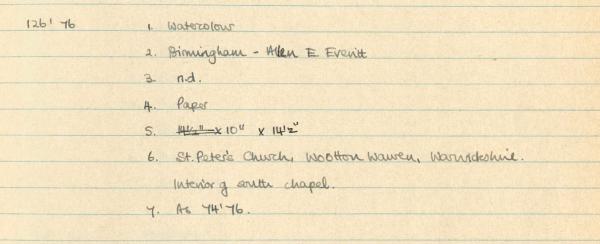 126' 76 1. Watercolour
2. Birmingham - Allen E Everitt
3 n.d.
4. Paper
5. 14½" x 10" x 14½"
6. St. Peter's Church, Wootton Wawen, Warwickshire.
Interior of south chapel.
7. As 74' 76.